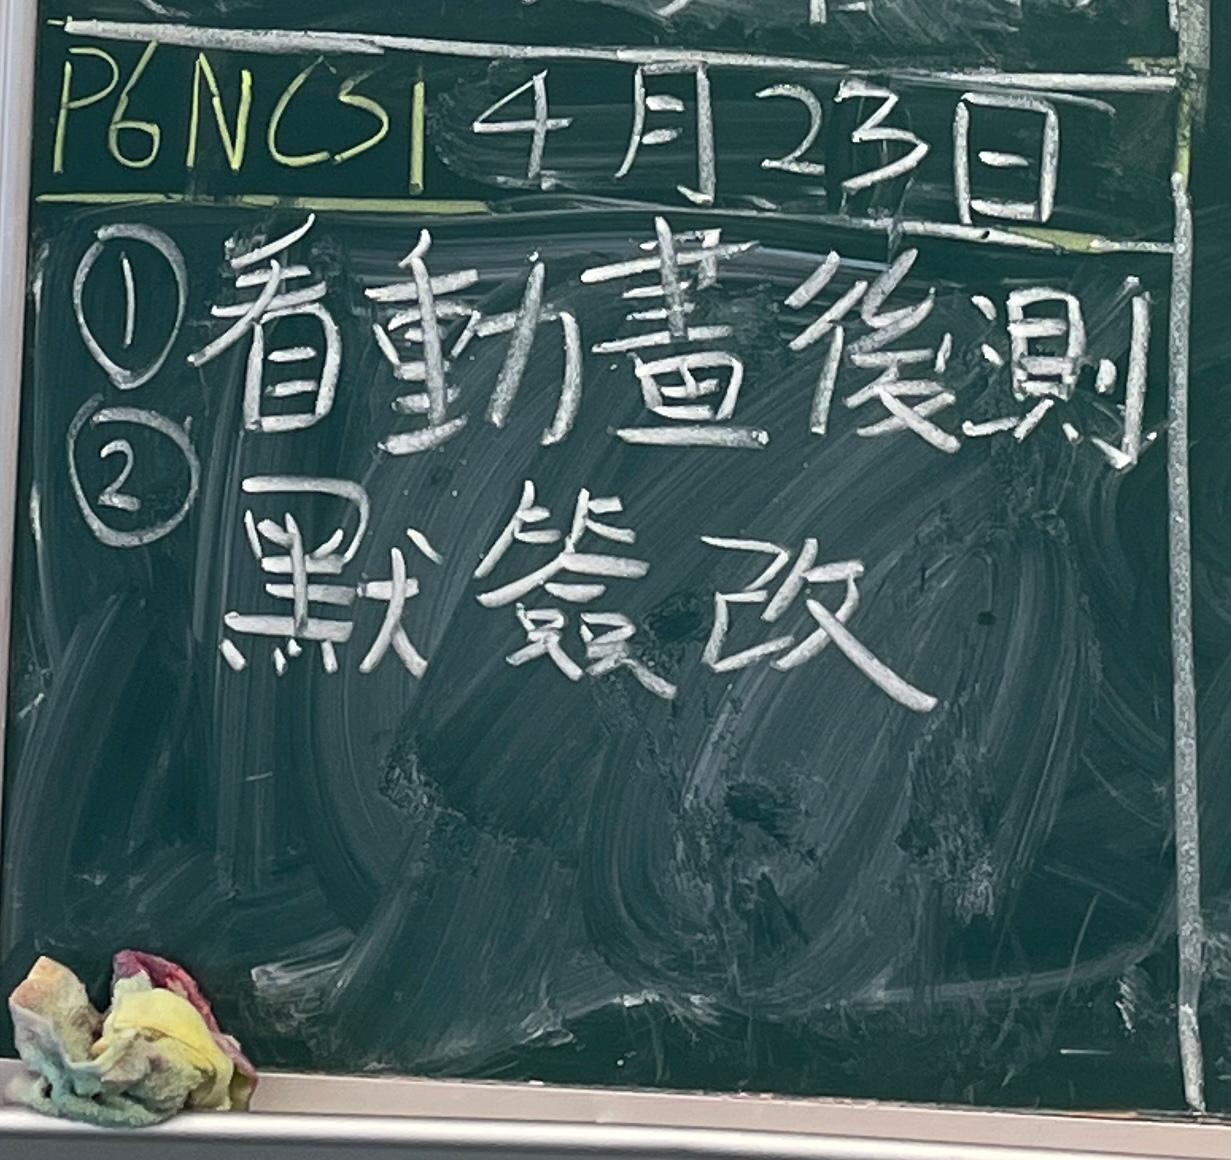 P6NCS1 4月23日
①看動畫後測
②默簽改